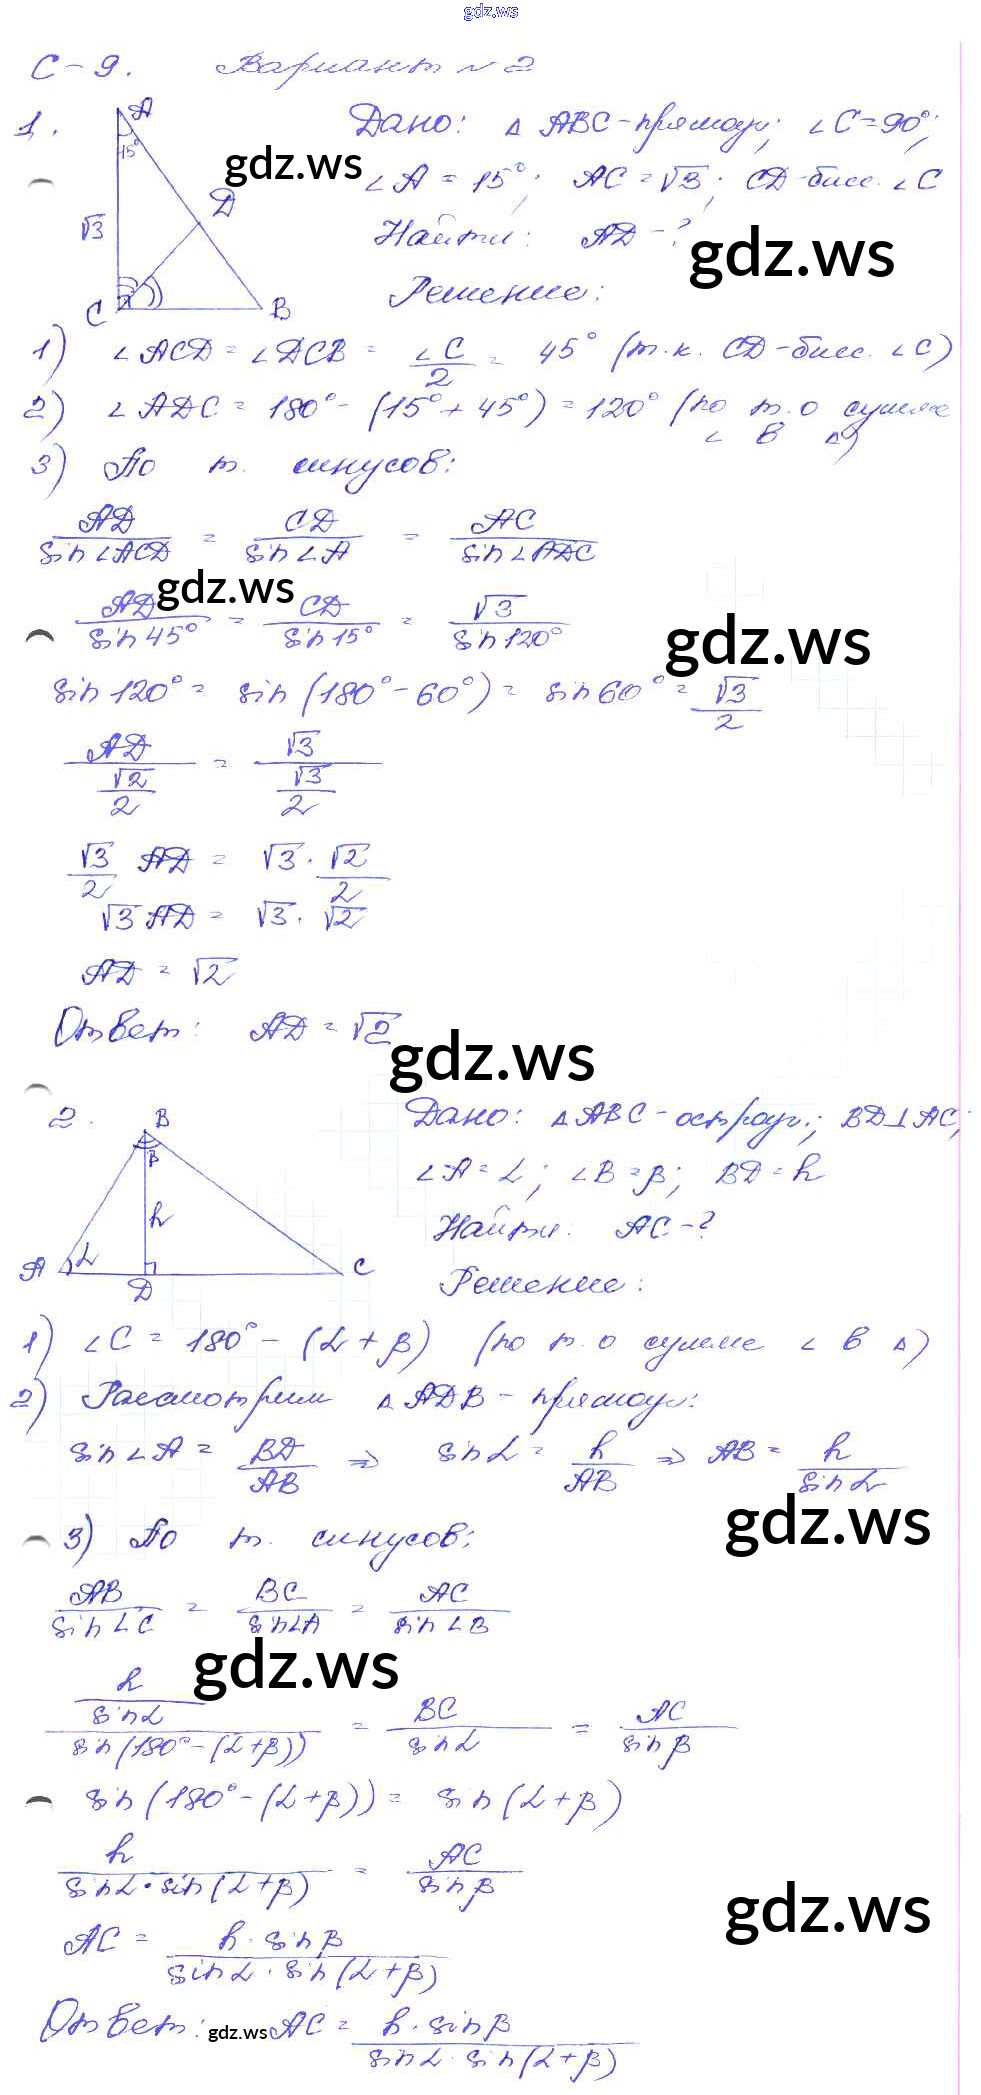 gdz.ws
С-9. Вариант №2
1. Дано: △ABC-прямоуг; ∠C=90°;
∠A = 15°; AC=√3; CD-бисс. ∠C
Найти: AD-?
Решение:
A
15°
√3
D
C
B
gdz.ws
gdz.ws
1) ∠ACD = ∠DCB = ∠C/2 = 45° (т.к. CD-бисс. ∠C)
2) ∠ADC = 180°-(15°+45°)=120° (по т. о сумме
∠ в △)
3) По т. синусов:
AD/sin∠ACD = CD/sin∠A = AC/sin∠ADC
gdz.ws
AD/sin45° = CD/sin15° = √3/sin120°
gdz.ws
sin120° = sin(180°-60°) = sin60° = √3/2
AD/(√2/2) = √3/(√3/2)
√3/2 AD = √3·√2/2
√3 AD = √3·√2
AD = √2
Ответ: AD=√2
gdz.ws
2. Дано: △ABC-остроуг.; BD⊥AC;
∠A=α; ∠B=β; BD=h
Найти: AC-?
Решение:
B
β
h
A
α
D
C
1) ∠C = 180°-(α+β) (по т. о сумме ∠ в △)
2) Рассмотрим △ADB-прямоуг:
sin∠A = BD/AB ⇒ sinα = h/AB ⇒ AB = h/sinα
gdz.ws
3) По т. синусов:
AB/sin∠C = BC/sin∠A = AC/sin∠B
gdz.ws
(h/sinα)/sin(180°-(α+β)) = BC/sinα = AC/sinβ
sin(180°-(α+β)) = sin(α+β)
h/(sinα·sin(α+β)) = AC/sinβ
gdz.ws
AC = h·sinβ/(sinα·sin(α+β))
Ответ: gdz.ws AC = h·sinβ/(sinα·sin(α+β))